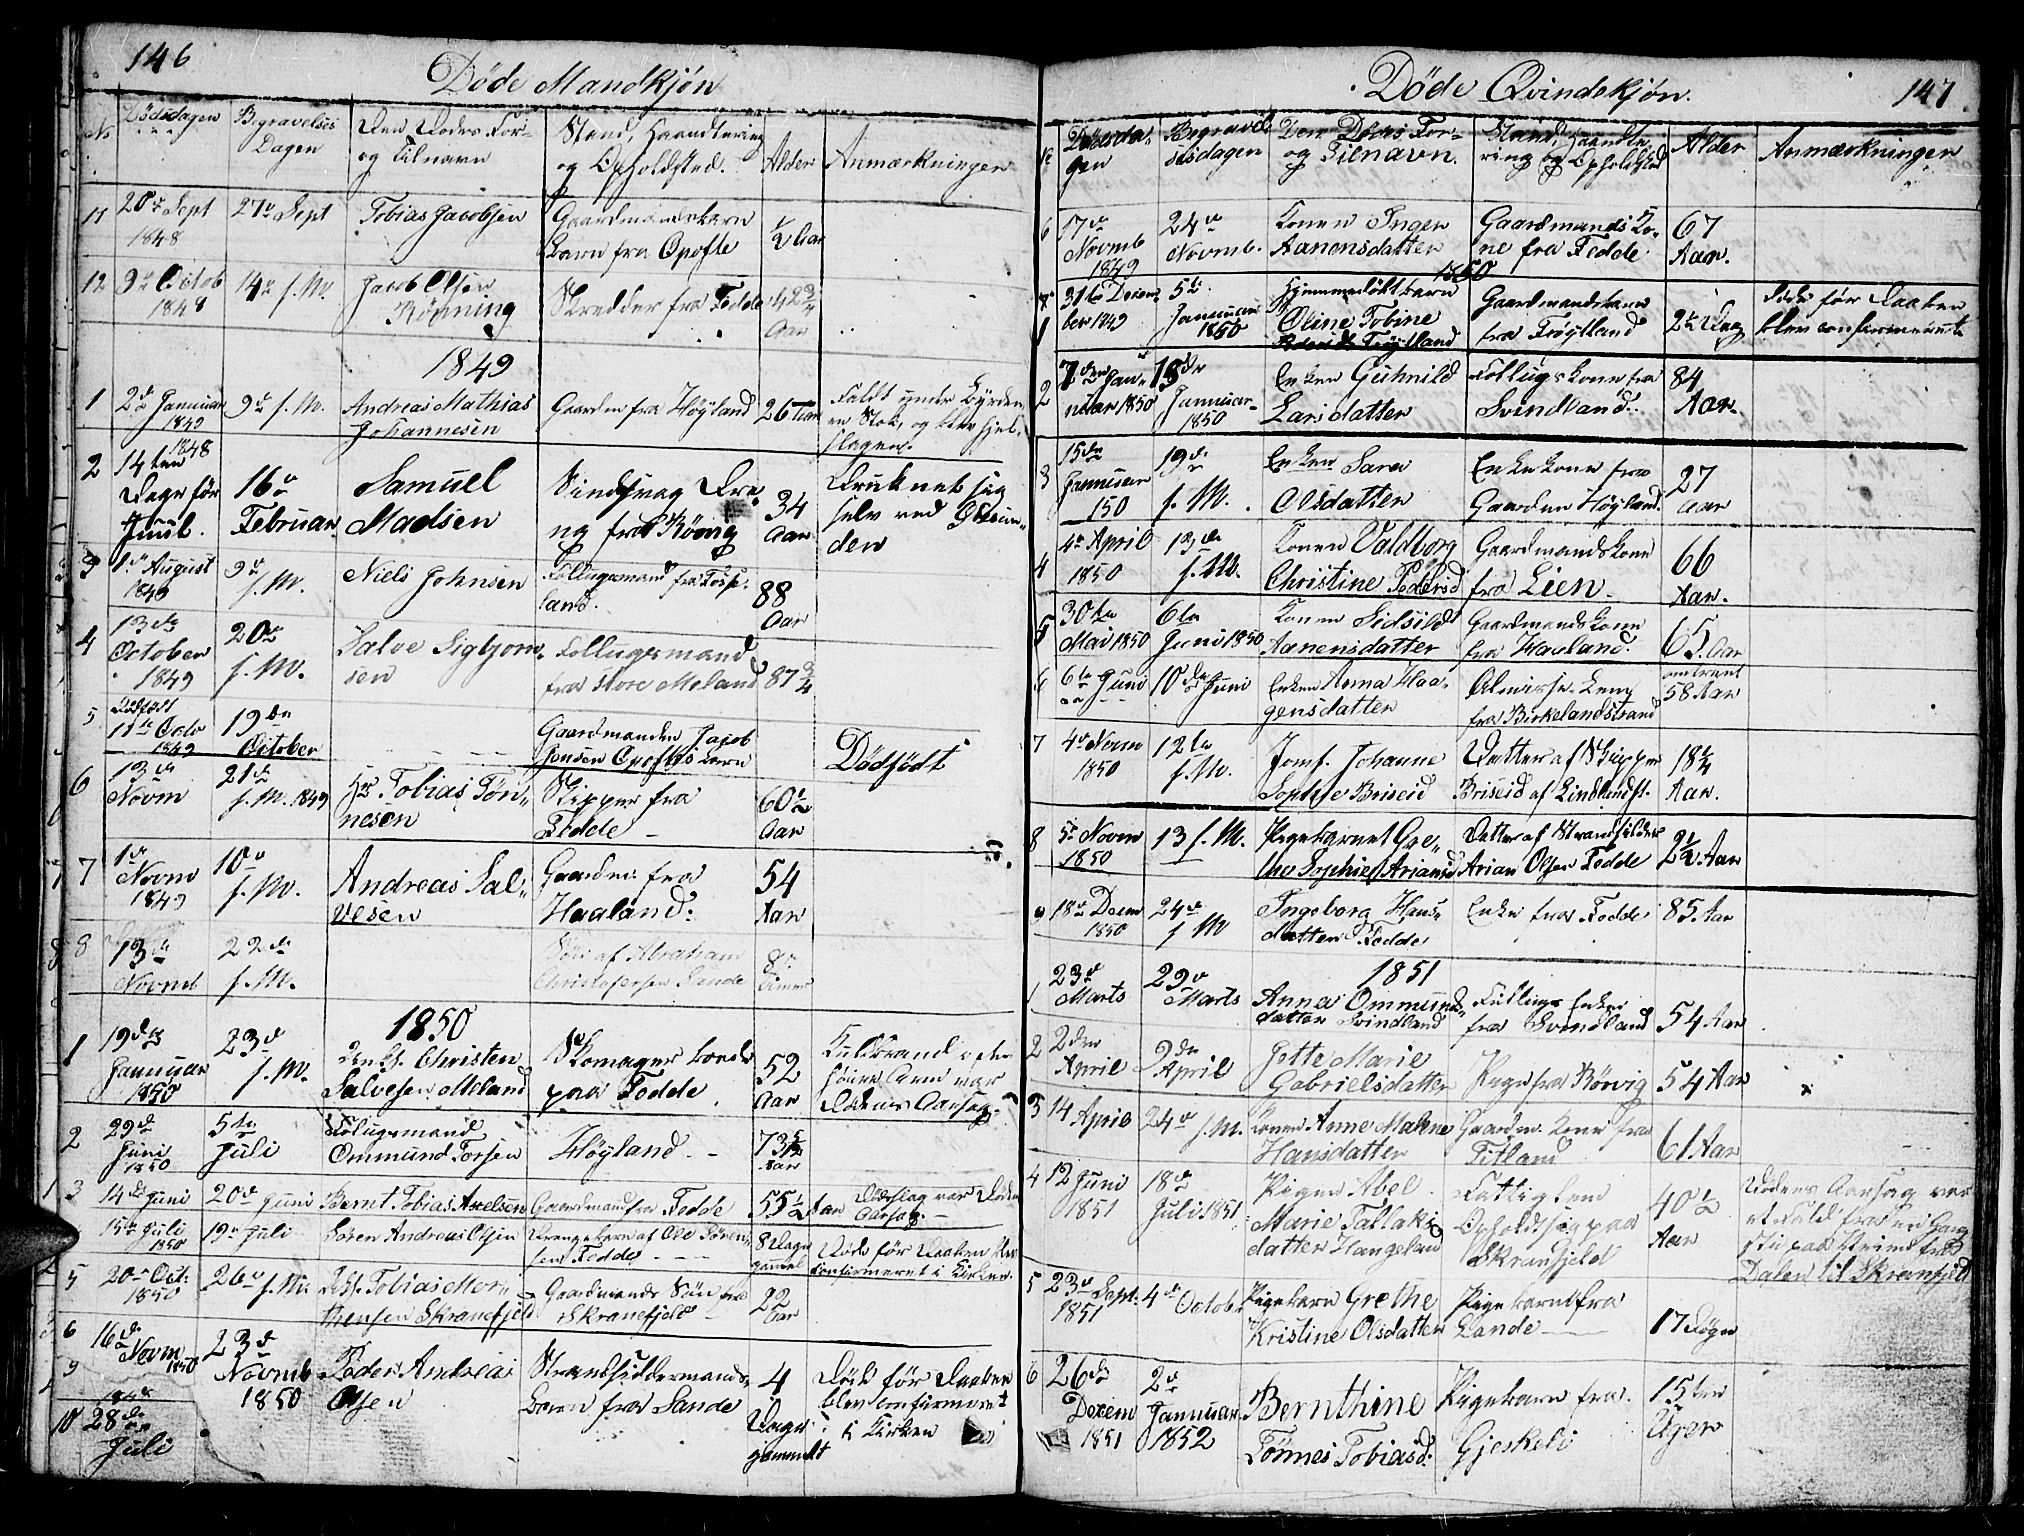 146
Døde Mandkjøn
No Dødsdagen Begravelses Dagen Den Dødes For- og Tilnavn Stand, Haandtering og Opholdsted. Alder Anmærkninger
11 20de Sept 1848 27de Sept Tobias Jacobsen Gaardmandsbarn Barn fra Opofte ½ Aar
12 9de Octob 1848 14de s. M. Jacob Olsen Rönning Skredder fra Fedde 42¾ Aar
1849
1 2de Januar 1849 9de s. M. Andreas Mathias Johannesen Gaardm fra Höyland 26 Aar Faldt under Byrden Stok, og blev hjel- slagen.
2 14ten Dage før Juul. 1848 16de Februar Samuel Madsen Dreng fra Rövig 34 Aar Druknet sig selv ved
3 1de August 1849 9de s. M. Niels Johnsen Follugsmand fra land. 88 Aar
4 13de October 1849 20de s. M. Salve Sigbjorn- sen Follugsmand fra store Meland 87¾
5 Dødfødt 11te Octo 1849 19de October Gaardmanden Jacob Jensen Opofte's Barn Dødfödt
6 13de Novm 21de s. M. 1849 Tobias Tön- nesen Skipper fra Fedde 60½ Aar
7 1de Novm 1849 10de s. M. Andreas Sal- vesen Gaardm. fra Haaland. 54 Aar
8 13de Novmb 22de s. M. Sön af Abraham Christofersen Sande 8
1850
1 19de Januar 1850 23de s. M. Christen Salvesen Meland Skomager paa Fedde 52 Aar Kuldbrand i den høire Arm var Dödens Aarsag.
2 29de Juni 1850 5te Juli Follugsmand Ommund Torsen Höyland 73 Aar
3 14de Juni 20de Juni Bernt Tobias Axelsen Gaardmand fra Fedde 55½ Aar Dødslag var Dødens Aarsag.
15de Juli 1850 19de Juli Sören Andreas Olsen Drengebarn af Ole Sören- sen Fedde 8 Dage gammel Døde før Daaben blev confirmeret i Kirken.
5 20de Oct: 1850 26de s. M. Tobias Mor- tensen Skranefjeld Gaardmands Sön fra Skranefjeld 22 Aar
6 16de Novm 1850 23de Novmb 1850
9 Peder Andreas Olsen Strandsiddermands Barn fra Sande 4 Dage gammelt Döde før Daaben blev confirmeret i Kirken
10 28de Juli
147
Døde Qvindekjön.
No Dødsda- gen Begravel- sesdagen Den Dødes For- og Tilnavn. Stand, Haandte- ring og Opholdsted Alder Anmærkninger
6 17de Novmb 1849 24de Novmb. Konen Inger Aanonsdatter Gaardmands Ko- ne fra Fedde 67 Aar.
1850
7 1 31te Decem- ber 1849 5te Januar 1850 Hjemmedöbt barn Oline Tobine Tröytland Gaardmandsbarn fra Tröytland 2½ Dag Döde før Daaben blev confirmeret
2 7den Jan- uar 1850 13de Januar 1850 Enken Guhnild Larsdatter Follugskone fra Svindland. 84 Aar.
3 15de Januar 150 19de s. M. Enken Sara Olsdatter Enkekone fra Gaarden Höyland. 27 Aar
4 4de April 1850 13de s. M. Konen Valdborg Christine Pedersd Gaardmandskone fra Lien. 66 Aar.
5 30te Mai 1850 6te Juni 1850 Konen Sidsild Aanensdatter Gaardmandskone fra Haaland. 65 Aar
6 6te Juni 10de Juni Enken Anna Haa- gensdatter Almisse-Lem fra Birkelandstrand omtrent 58 Aar
7 4de Novm 1850 12te s. M. Jomf. Johanne Sophie Briseid Datter af Skipper Briseid af Lindlandst. 18¼ Aar.
8 5te Novm 1850 13 s. M. Pigebarnet Gre- the Sophie Ariansd Datter af Strandsidder Arian Olsen Fedde 2½ Aar
9 18de Decm 1850 24de s. M Ingeborg Hans- datter Fedde Enke fra Fedde 85 Aar
1851
1 23de Marts 29de Marts Anna Ommunds- datter Svindland Follugs Enke fra Svindland 54 Aar
2 2den April 9de April Jette Marie Gabrielsdatter Pige fra Rörvig 54 Aar
3 14 April 24de s. M. Konen Anne Malene Hansdatter Gaardm. Kone fra Titland 61 Aar
4 12 Juni 1851 18de Juli 1851 Pigen Abel Marie Tallaks- datter Hangeland Fattiglem Opholdt sig paa Skranfjeld 40½ Aar Dödens Aarsag var et Fald fra en Gang- sti paa Veien fra Dalen til Skranfjeld
5 23de Sept: 1851 4de Octob. Pigebarn Grethe Kristine Olsdatter Pigebarn fra Lande 17 Døgn
6 26de Decem 1851 2de Januar 1852 Bernthine Tönnes Tobiasd. Pigebarn fra Gjeskeli 15ten Uger